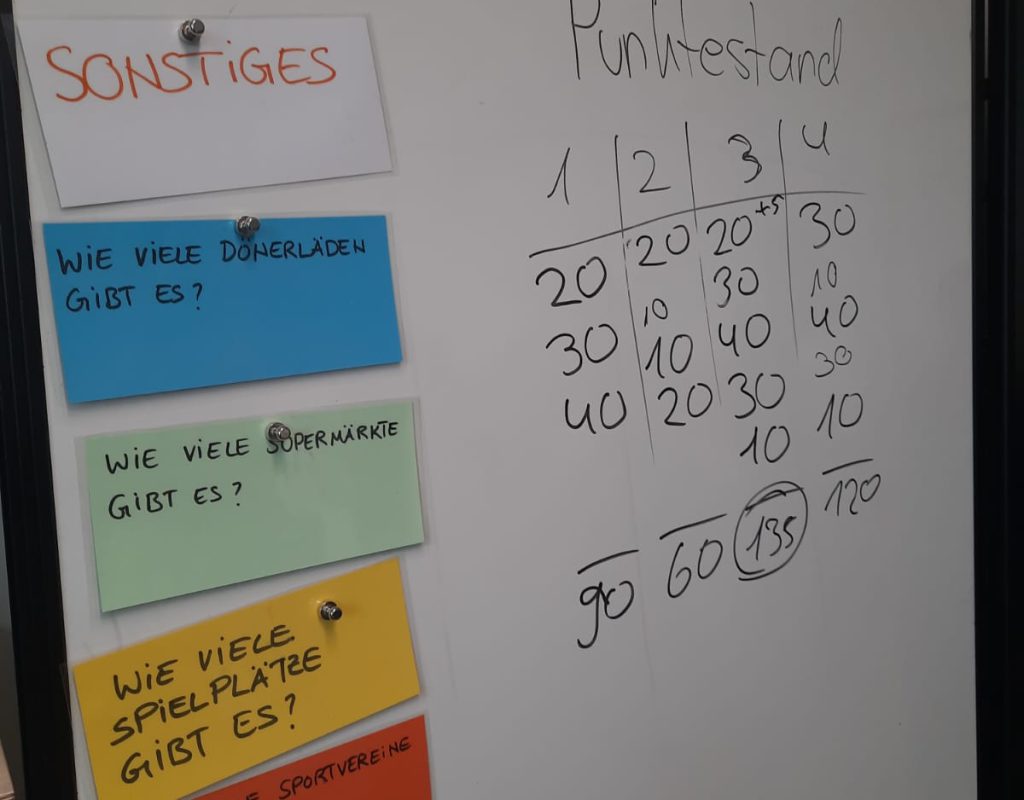 SONSTiGES
WiE ViELE DÖNERLÄDEN
GiBT ES?
WiE ViELE SUPERMÄRKTE
GiBT ES?
WiE ViELE
SPiELPLÄTZE
GiBT ES?
SPORTVEREiNE
Punktestand
1 2 3 4
20 20 20+5 30
30 10 30 10
40 10 40 40
20 30 30
10 10
90 60 135 120